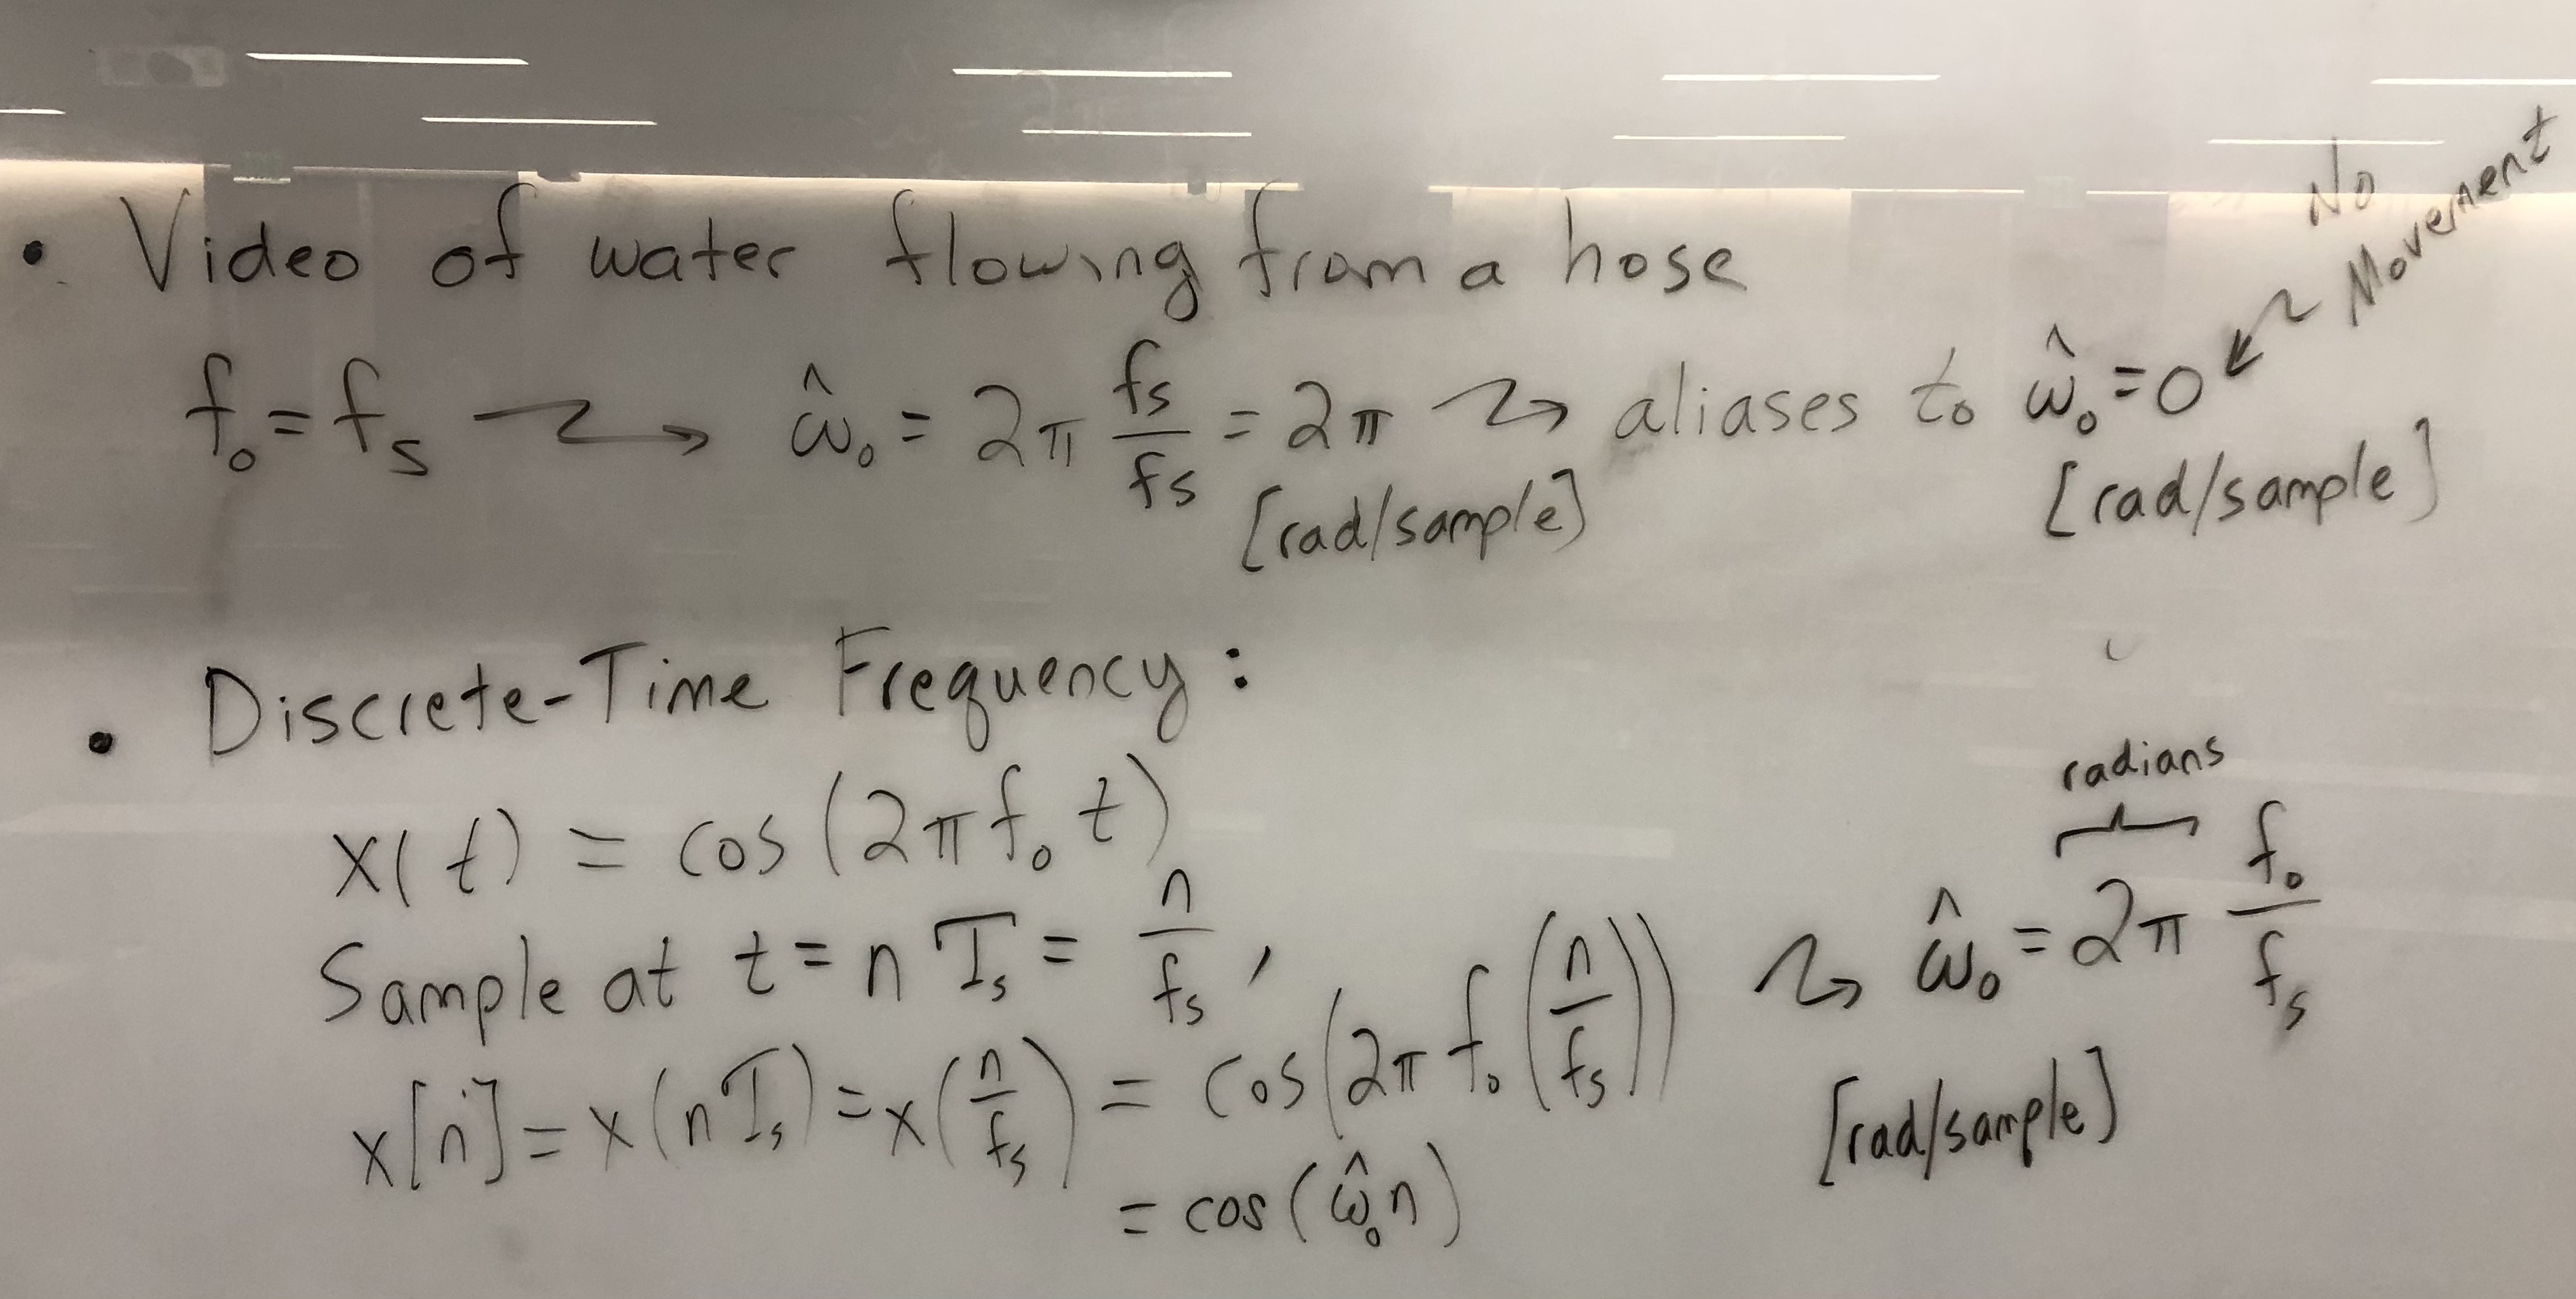 • Video of water flowing from a hose
No
Movement
f₀ = fₛ ⤳ ω̂₀ = 2π fₛ/fₛ = 2π ⤳ aliases to ω̂₀ = 0
[rad/sample] [rad/sample]
• Discrete-Time Frequency:
x(t) = cos(2πf₀t)
Sample at t = nTₛ = n/fₛ,
x[n] = x(nTₛ) = x(n/fₛ) = cos(2πf₀(n/fₛ))
= cos(ω̂₀n)
radians
⤳ ω̂₀ = 2π f₀/fₛ
[rad/sample]